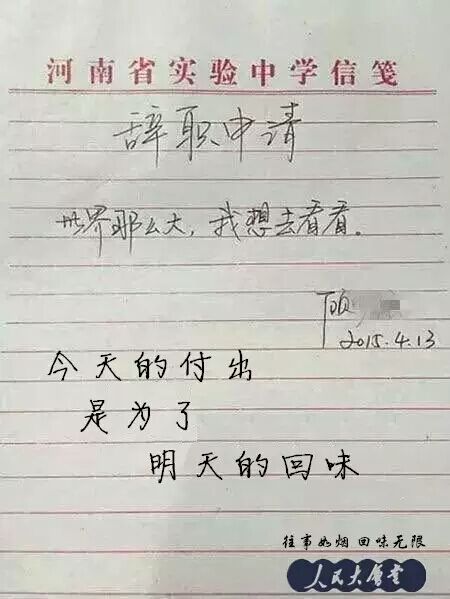 河南省实验中学信笺
辞职申请
世界那么大，我想去看看。
顾
2015.4.13
今天的付出
是为了
明天的回味
往事如烟 回味无限
人民大会堂